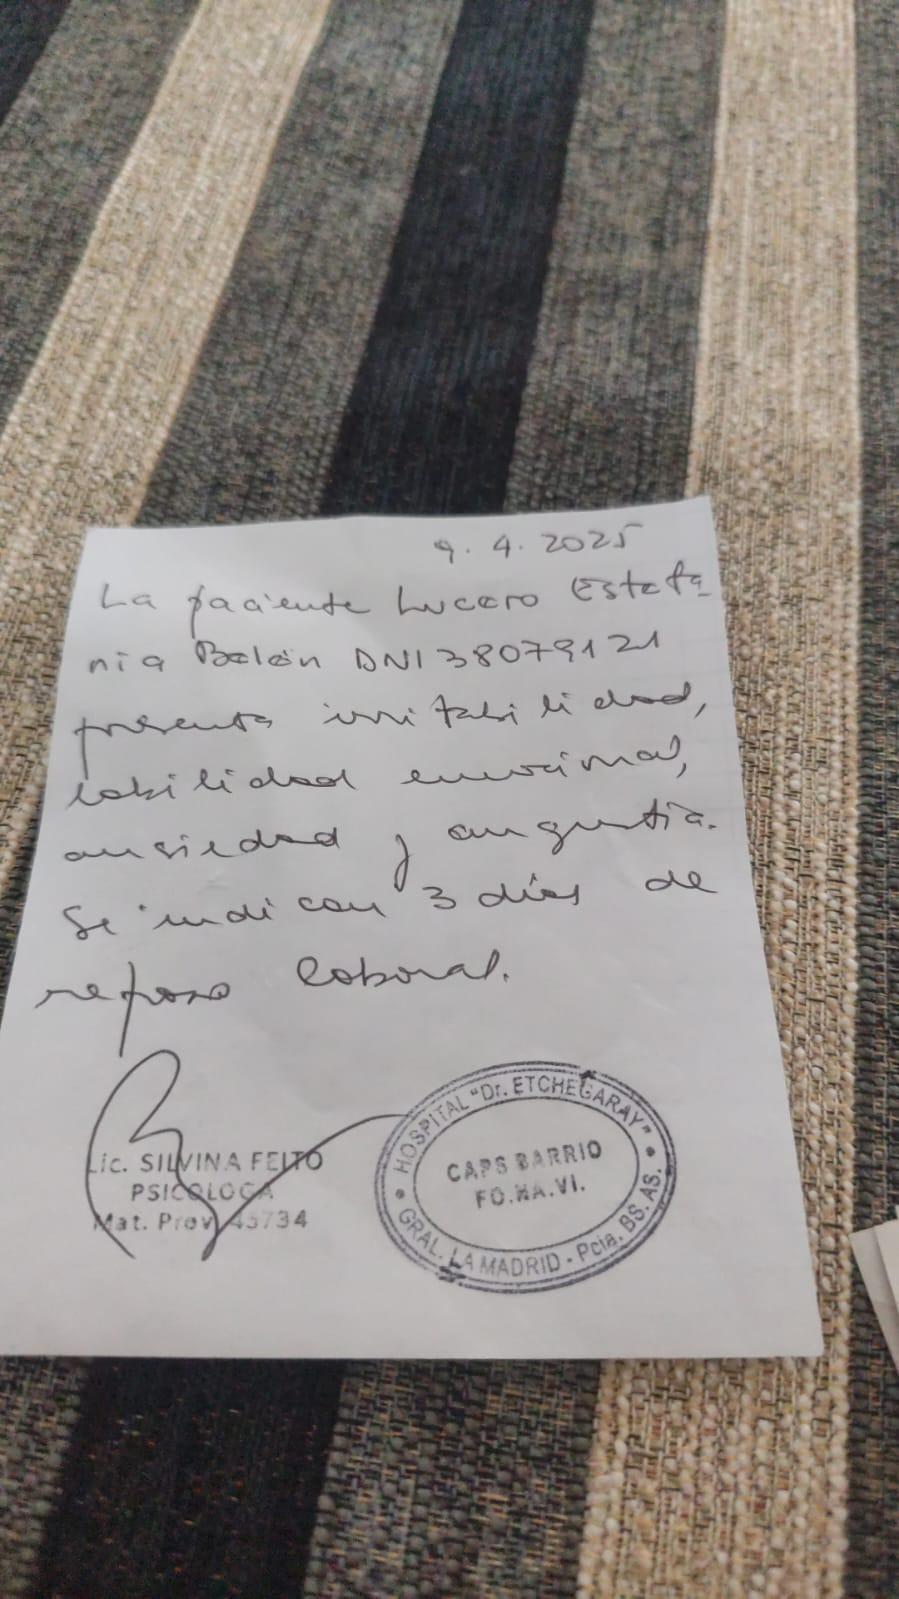 9.4.2025
La paciente Lucero Estefa
nia Belén DNI 38079121
presenta irritabilidad,
labilidad emocional,
ansiedad y angustia.
Se indican 3 días de
reposo laboral.
Lic. SILVINA FEITO
PSICOLOGA
Mat. Prov. 45734
HOSPITAL "Dr. ETCHEGARAY"
CAPS BARRIO
FO.NA.VI.
GRAL. LA MADRID - Pcia. BS. AS.